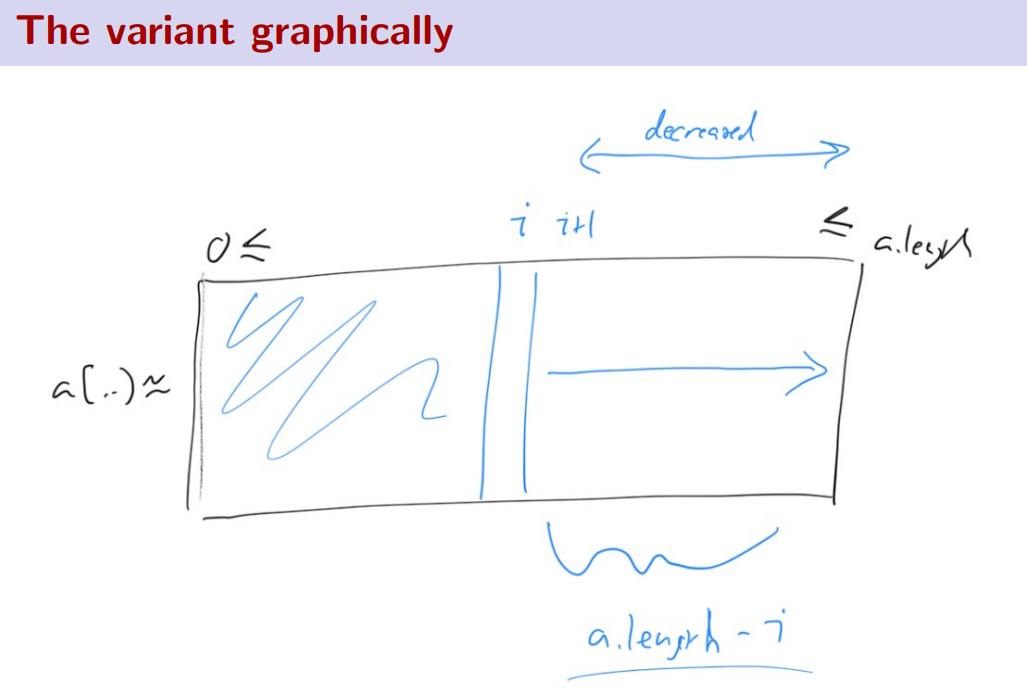 The variant graphically
decreased
i i+1
0 ≤ ≤ a.length
a[..) ≈
a.length - i